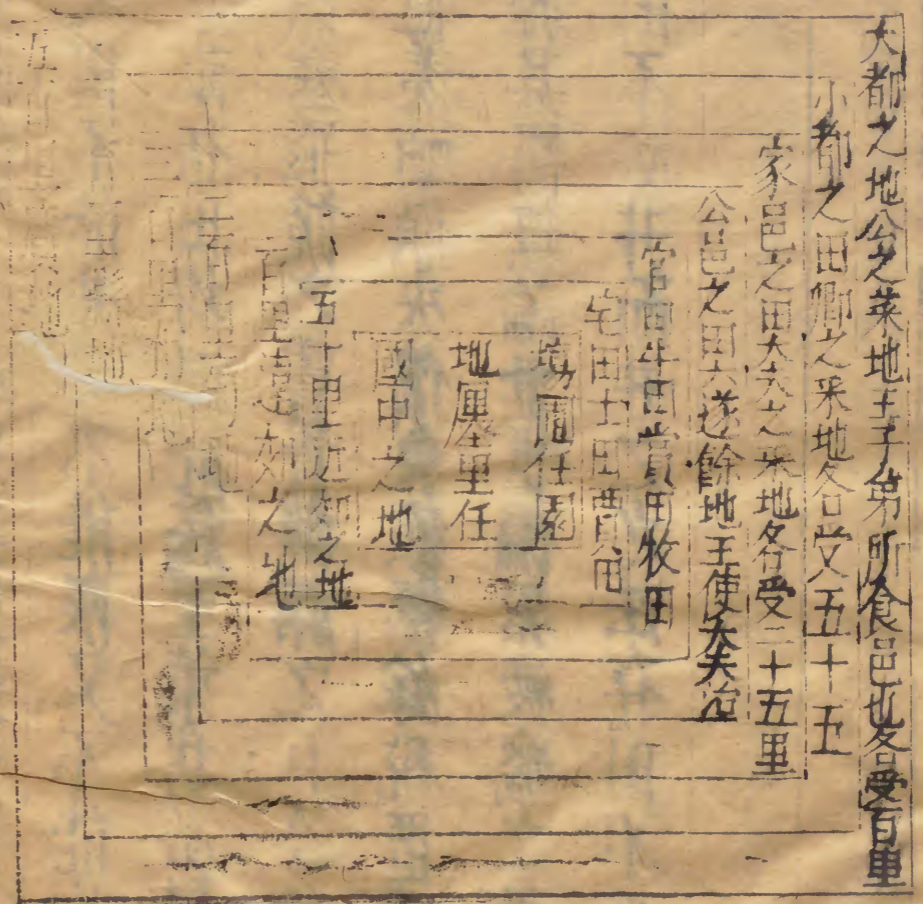 大都之地公之菜地王子弟所食邑也各受百里
小都之田卿之采地各受五十五
家邑之田大夫之采地各受二十五里
公邑之田六遂餘地王使大夫治
官田牛田賞田牧田
宅田士田賈田
場圃任園
地廛里任
國中之地
五十里近郊之地
百里遠郊之地
二百里
三百里
五百里